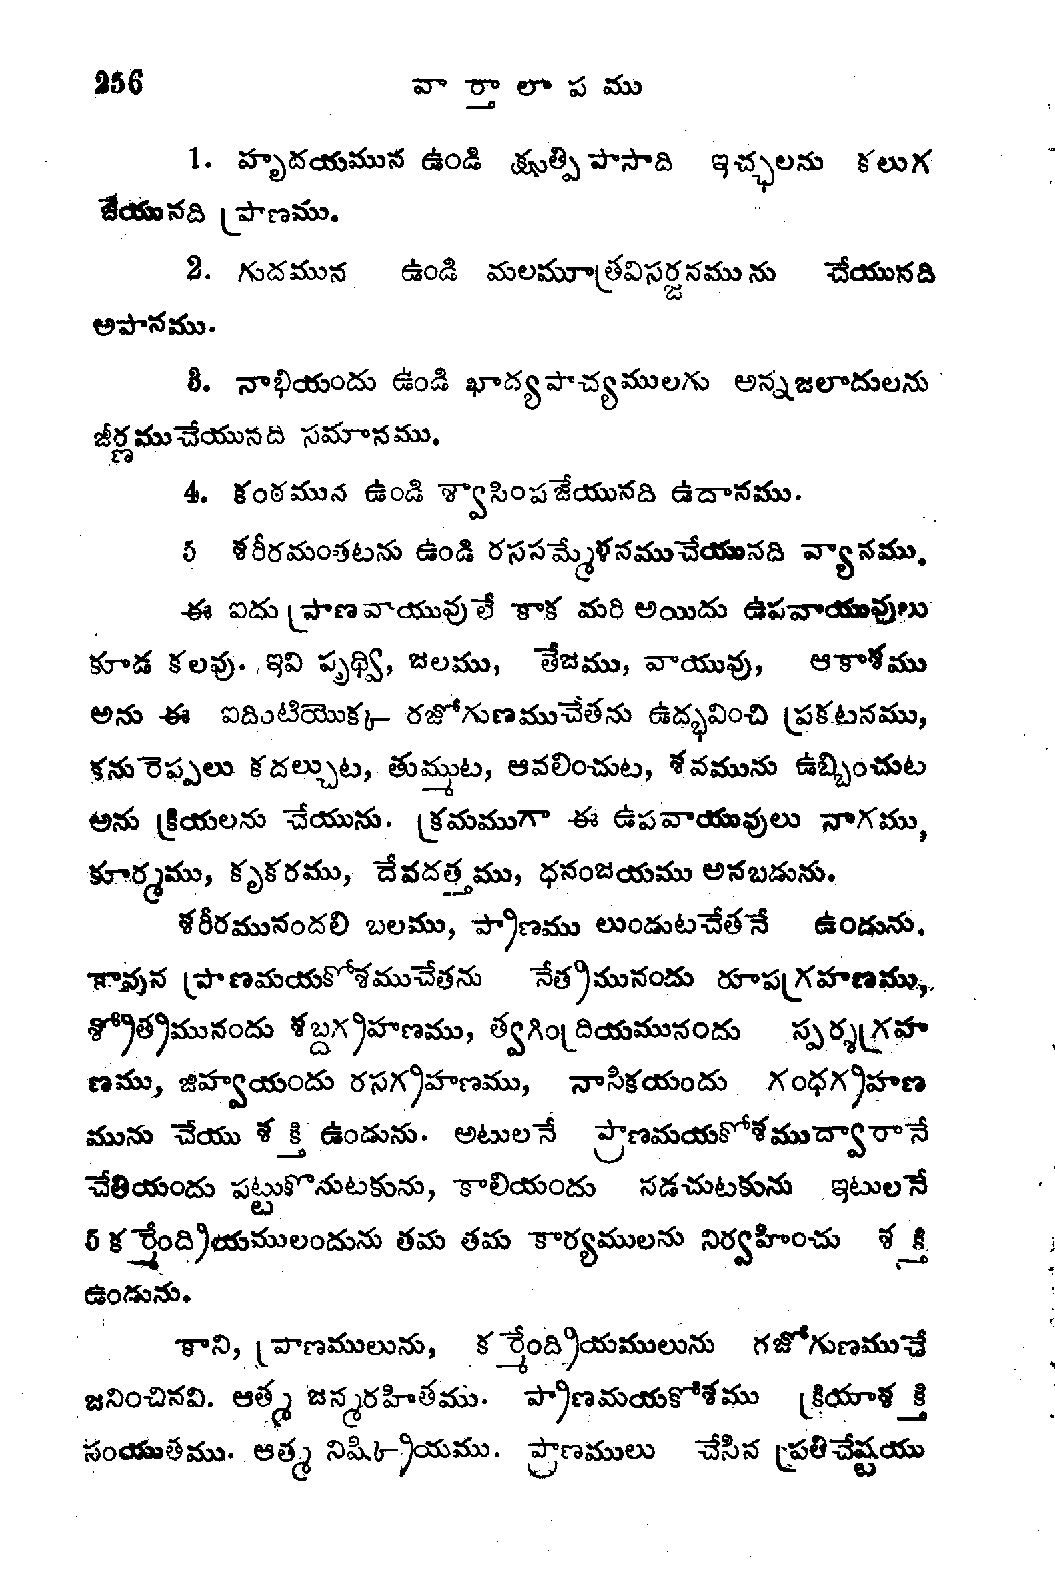 256 వార్తాలాపము
1. హృదయమున ఉండి క్షుత్పిపాసాది ఇచ్ఛలను కలుగ
జేయునది ప్రాణము.
2. గుదమున ఉండి మలమూత్రవిసర్జనమును చేయునది
అపానము.
3. నాభియందు ఉండి ఖాద్యపాచ్యములగు అన్నజలాదులను
జీర్ణముచేయునది సమానము.
4. కంఠమున ఉండి శ్వాసింపజేయునది ఉదానము.
5 శరీరమంతటను ఉండి రససమ్మేళనముచేయునది వ్యానము.
ఈ ఐదు ప్రాణవాయువులే కాక మరి అయిదు ఉపవాయువులు
కూడ కలవు. ఇవి పృథ్వి, జలము, తేజము, వాయువు, ఆకాశము
అను ఈ ఐదింటియొక్క రజోగుణముచేతను ఉద్భవించి ప్రకటనము,
కనురెప్పలు కదల్చుట, తుమ్ముట, ఆవలించుట, శవమును ఉబ్బించుట
అను క్రియలను చేయును. క్రమముగా ఈ ఉపవాయువులు నాగము,
కూర్మము, కృకరము, దేవదత్తము, ధనంజయము అనబడును.
శరీరమునందలి బలము, ప్రాణము లుండుటచేతనే ఉండును.
కావున ప్రాణమయకోశముచేతను నేత్రమునందు రూపగ్రహణము,
శ్రోత్రమునందు శబ్దగ్రహణము, త్వగింద్రియమునందు స్పర్శగ్రహ
ణము, జిహ్వయందు రసగ్రహణము, నాసికయందు గంధగ్రహణ
మును చేయు శక్తి ఉండును. అటులనే ప్రాణమయకోశముద్వారానే
చేతియందు పట్టుకొనుటకును, కాలియందు నడచుటకును ఇటులనే
5 కర్మేంద్రియములందును తమ తమ కార్యములను నిర్వహించు శక్తి
ఉండును.
కాని, ప్రాణములును, కర్మేంద్రియములును రజోగుణముచే
జనించినవి. ఆత్మ జన్మరహితము. ప్రాణమయకోశము క్రియాశక్తి
సంయుతము. ఆత్మ నిష్క్రియము. ప్రాణములు చేసిన ప్రతిచేష్టయు